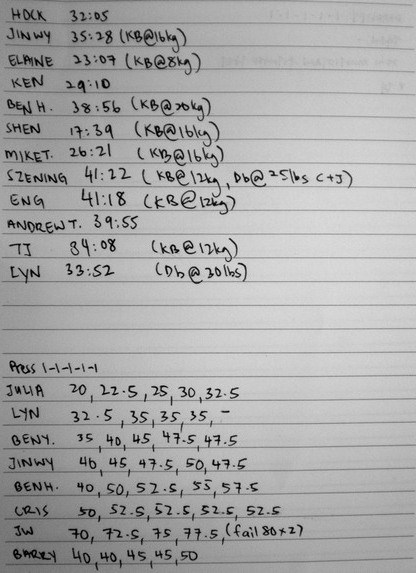 HOCK 32:05
JINWY 35:28 (KB@16kg)
ELAINE 23:07 (KB@8kg)
KEN 29:10
BEN H. 38:56 (KB@20kg)
SHEN 17:39 (KB@16kg)
MIKE T. 26:21 (KB@16kg)
SZENING 41:22 (KB@12kg, Db@25lbs C+J)
ENG 41:18 (KB@12kg)
ANDREW T. 39:55
TJ 34:08 (KB@12kg)
LYN 33:52 (Db@30lbs)
Press 1-1-1-1-1
JULIA 20, 22.5, 25, 30, 32.5
LYN 32.5, 35, 35, 35, -
BENY. 35, 40, 45, 47.5, 47.5
JINWY 40, 45, 47.5, 50, 47.5
BENH. 40, 50, 52.5, 55, 57.5
CRIS 50, 52.5, 52.5, 52.5, 52.5
JW 70, 72.5, 75, 77.5, (fail 80x2)
BARRY 40, 40, 45, 45, 50